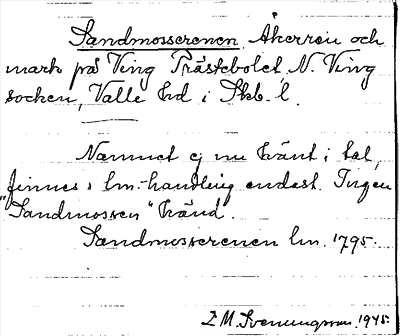 Sandmosserenen Åkerren och
mark på Ving Prästebolet, N. Ving
socken, Valle hd i Skb. l.
Namnet ej nu känt i tal,
finnes i lm.-handling endast. Ingen
"Sandmossen" känd.
Sandmosserenen lm. 1795.
M. Svenungsson. 1945.